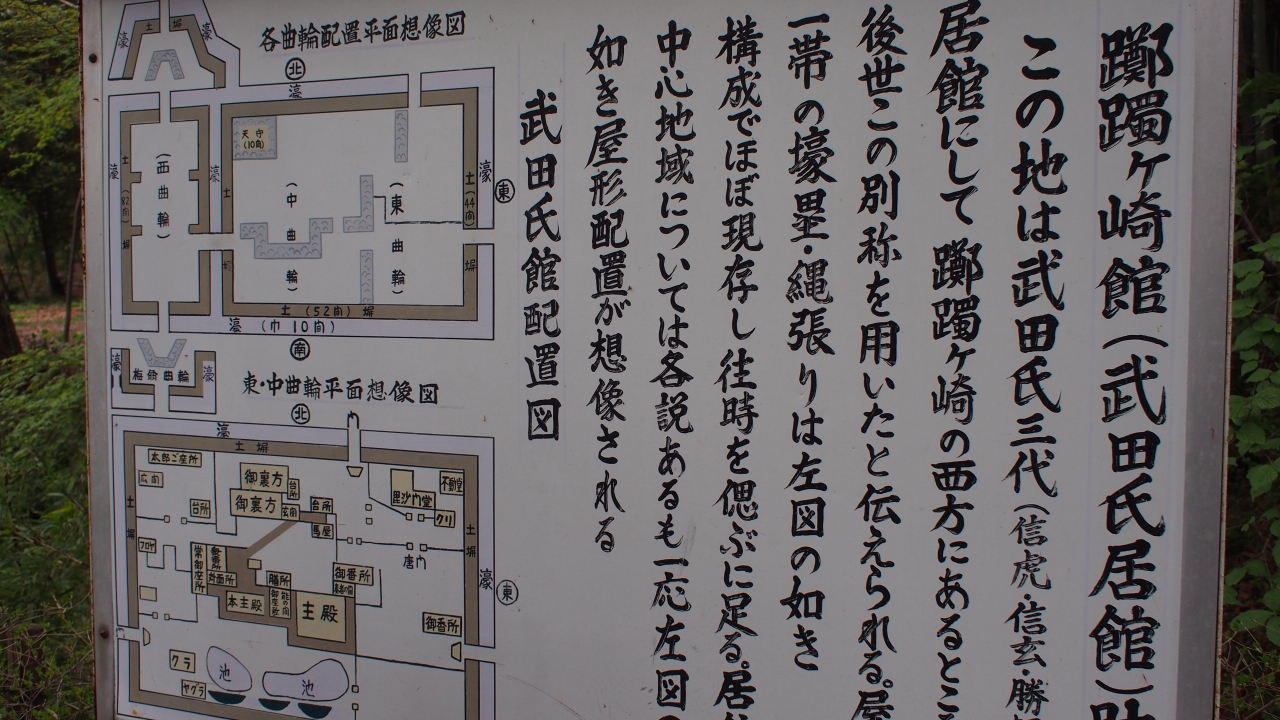 躑躅ヶ崎館(武田氏居館)
この地は武田氏三代(信虎・信玄・勝
居館にして 躑躅ヶ崎の西方にあるところ
後世この別称を用いたと伝えられる。屋
一帯の壕塁・縄張りは左図の如き
構成でほぼ現存し往時を偲ぶに足る。居
中心地域については各説あるも一応左図の
如き屋形配置が想像される
武田氏館配置図
各曲輪配置平面想像図
北
濠
濠
土塀
濠
天守
(10間)
(西曲輪)
(中曲輪)
(東曲輪)
濠
土(44間)塀
東
土(52間)塀
濠(巾10間)
南
濠
梅翁曲輪
濠
東・中曲輪平面想像図
北
濠
土塀
太郎ご座所
広間
台所
御裏方
御裏方
台所
玄関
台所
馬屋
毘沙門堂
不動堂
クリ
唐門
フロヤ
常御座所
対面所
膳所
本主殿
御番所
主殿
御番所
クラ
ヤグラ
池
池
土塀
土塀
濠
東